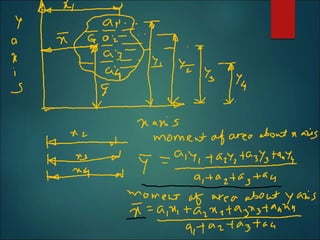 x₁
y
a
x
i
s
x̄
G
a₁
a₂
a₃
a₄
G
y₁
y₂
y₃
y₄
x axis
x₂
x₃
x₄
moment of area about x axis
ȳ = a₁y₁+a₂y₂+a₃y₃+a₄y₄
a₁+a₂+a₃+a₄
moment of area about y axis
x̄ = a₁x₁+a₂x₂+a₃x₃+a₄x₄
a₁+a₂+a₃+a₄